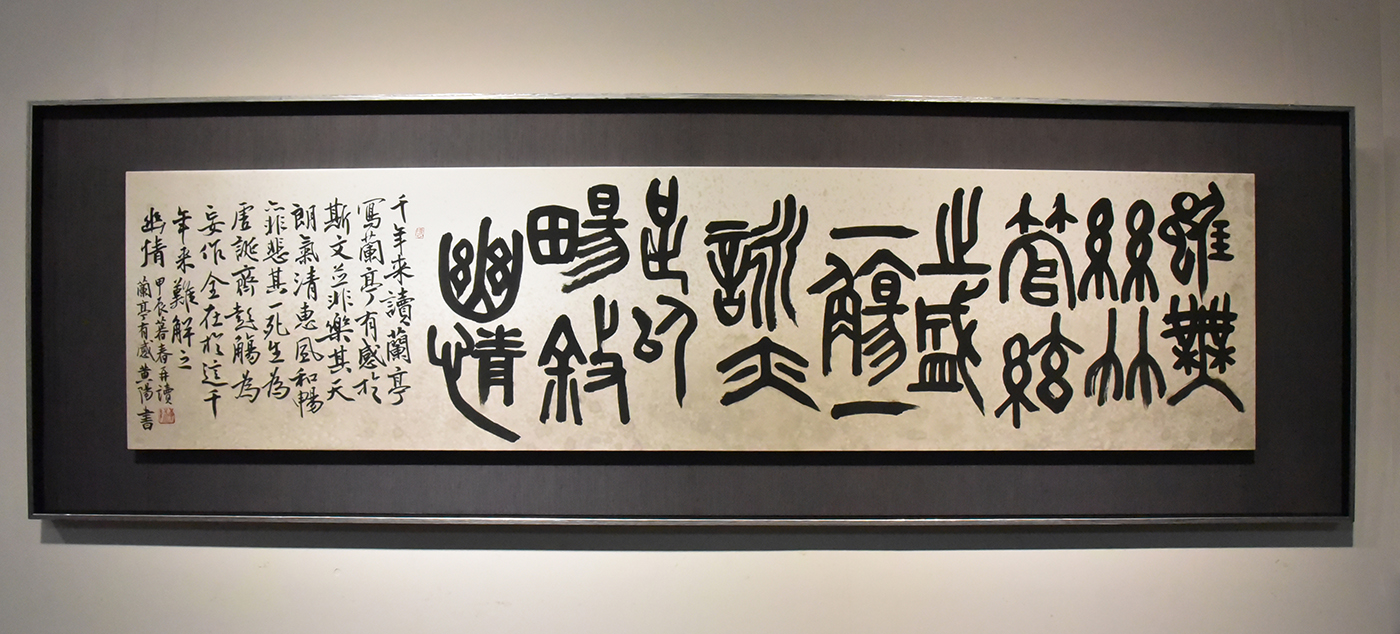 雖無
絲竹
管絃
之盛
一觴一
詠亦
足以
暢敘
幽情
千年来讀蘭亭
寫蘭亭有感於
斯文並非樂其天
朗氣清惠風和暢
亦非悲其一死生為
虛誕齊彭觴為
妄作全在於這千
年来難解之
幽情
甲辰暮春再讀
蘭亭有感黄陽書